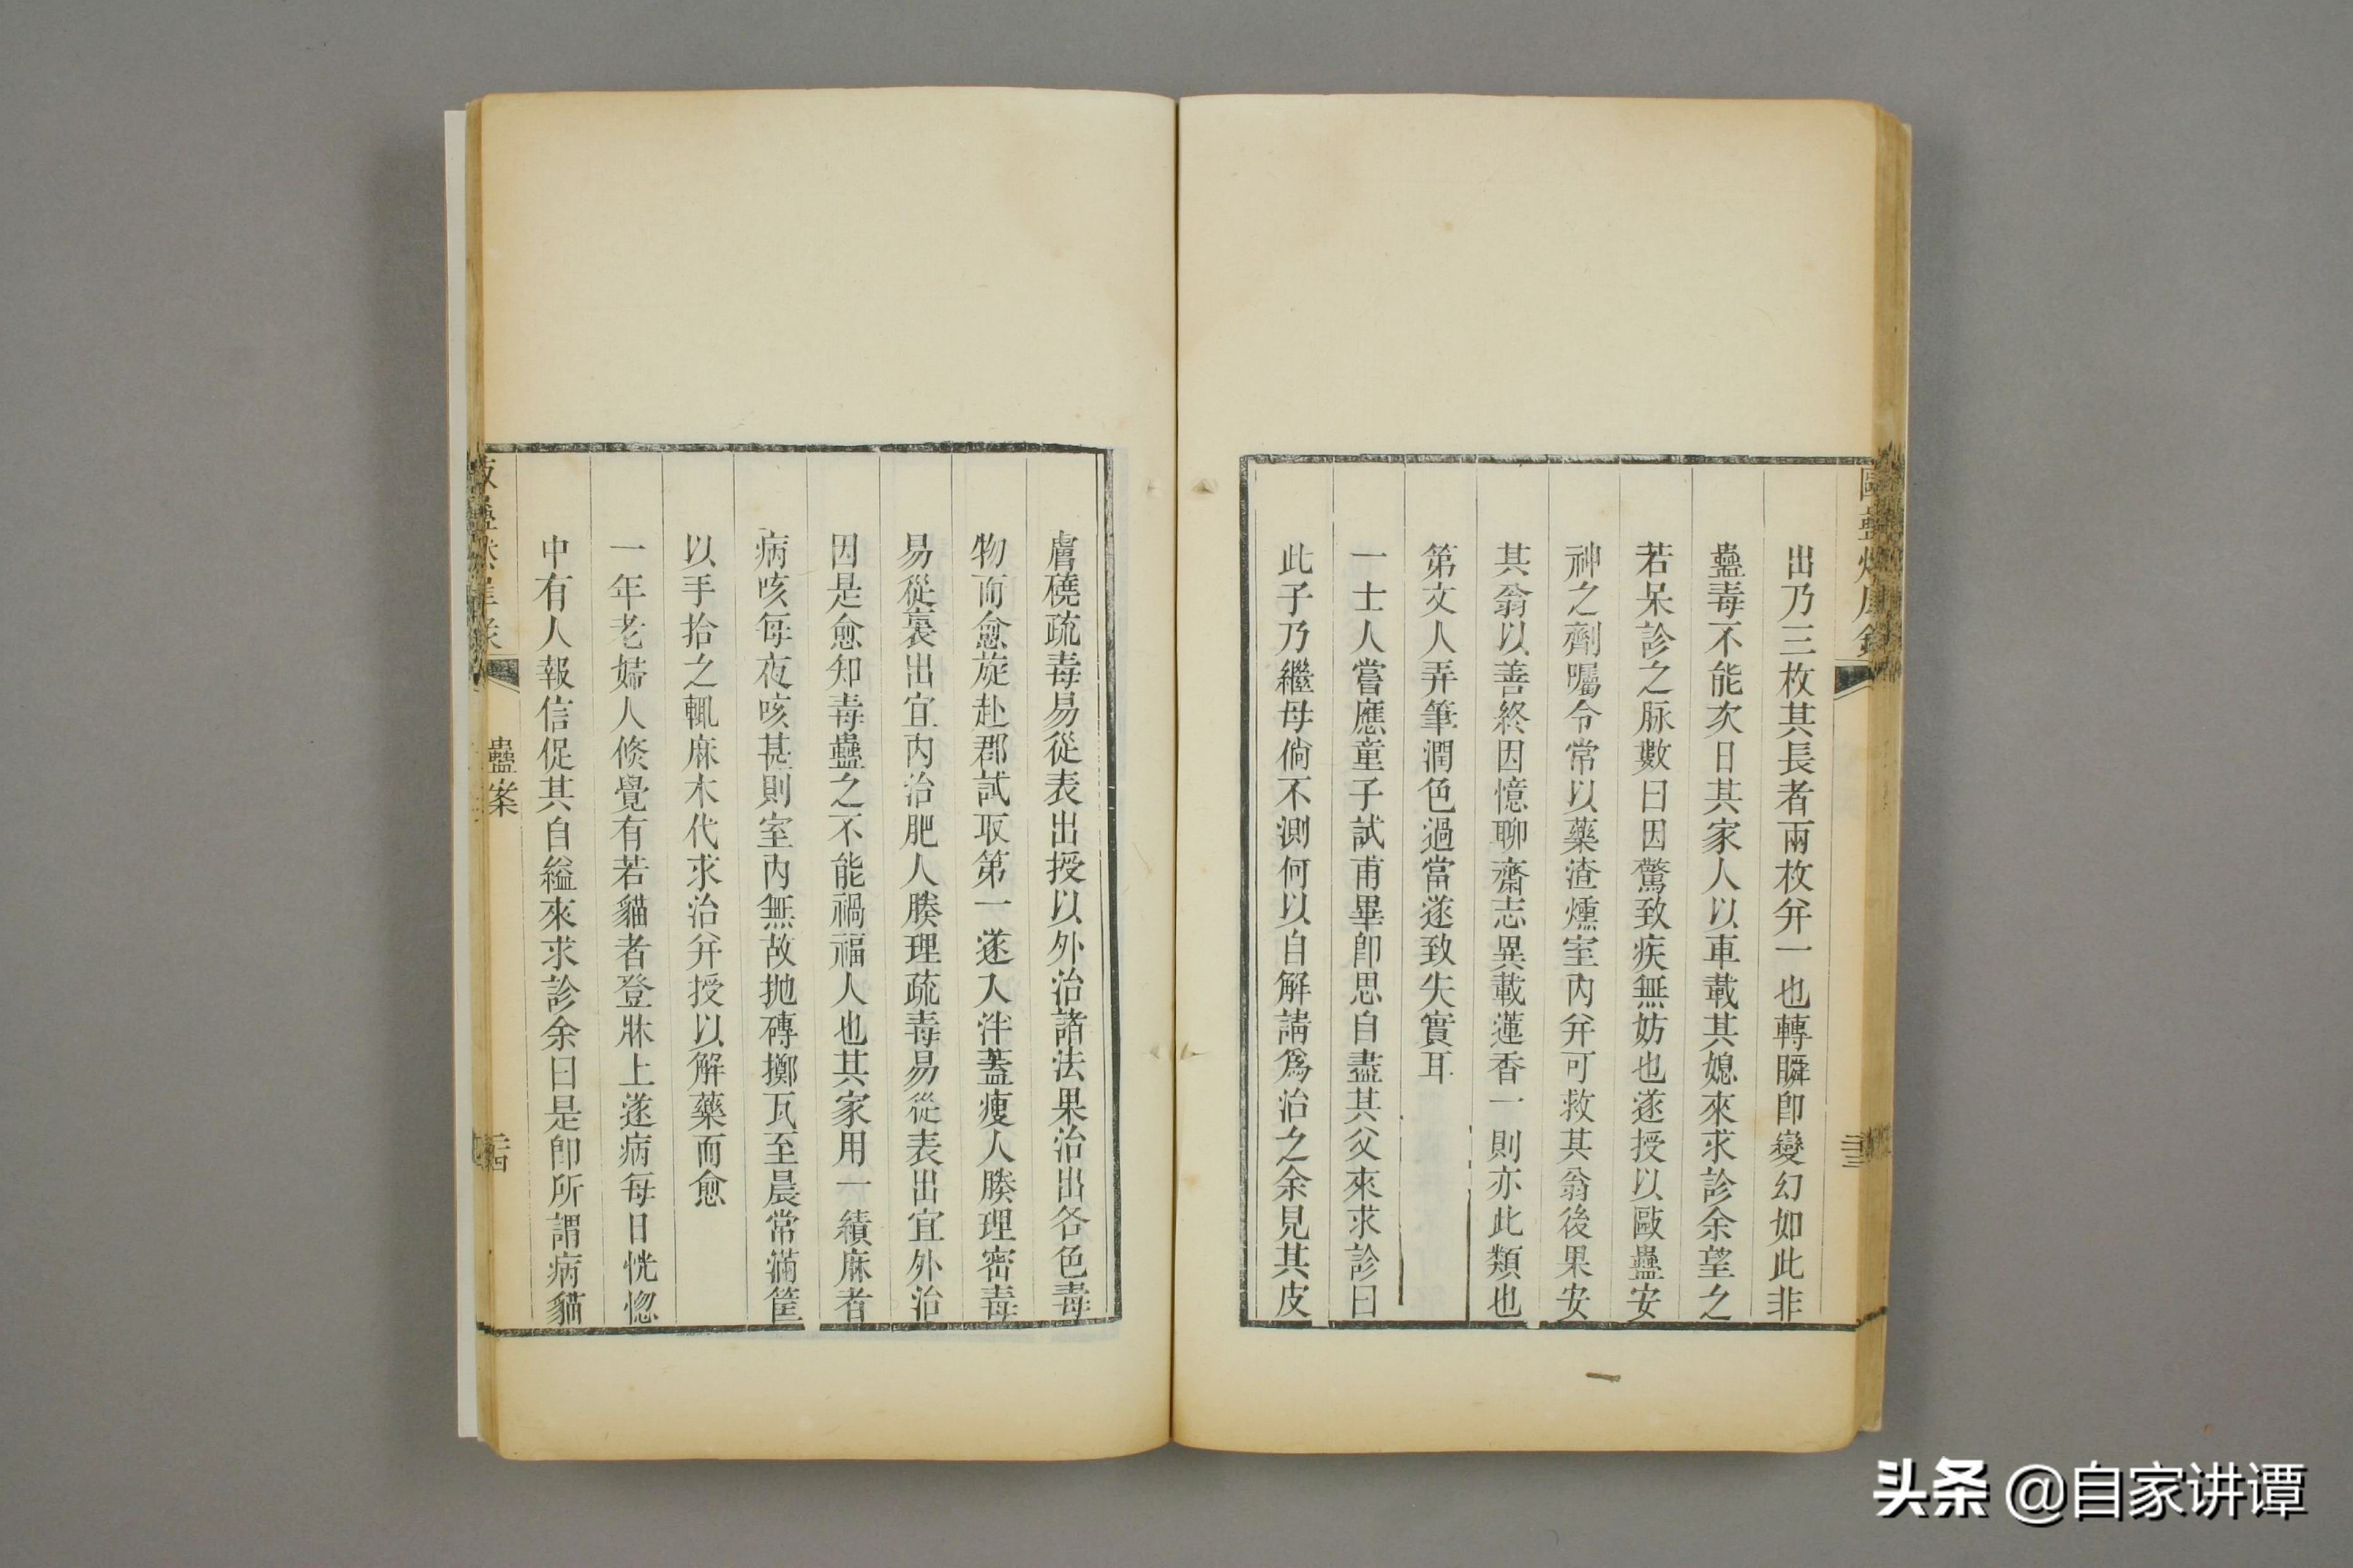 出乃三枚其長者兩枚幷一也轉瞬卽變幻如此非
蠱毒不能次日其家人以車載其媳來求診余望之
若呆診之脉數曰因驚致疾無妨也遂授以毆蠱安
神之劑囑令常以藥渣燻室內幷可救其翁後果安
其翁以善終因憶聊齋志異載蓮香一則亦此類也
第文人弄筆潤色過當遂致失實耳
一士人嘗應童子試甫畢卽思自盡其父來求診曰
此子乃繼母倘不測何以自解請爲治之余見其皮
膚磽疏毒易從表出授以外治諸法果治出各色毒
物而愈旋赴郡試取第一遂入泮蓋瘦人腠理密毒
易從裏出宜內治肥人腠理疏毒易從表出宜外治
因是愈知毒蠱之不能禍福人也其家用一績麻者
病咳每夜咳甚則室內無故拋磚擲瓦至晨常滿筐
以手拾之輒麻木代求治幷授以解藥而愈
一年老婦人倏覺有若貓者登牀上遂病每日恍惚
中有人報信促其自縊來求診余曰是卽所謂病貓
蠱案
頭条 @自家讲谭